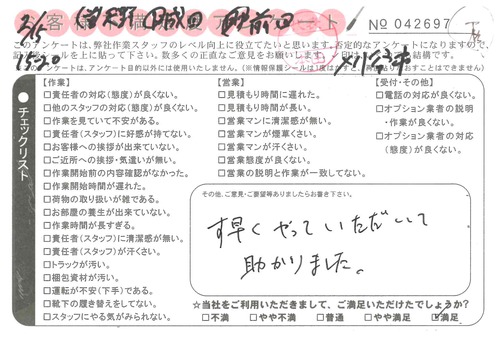 お客様満足度アンケート
No 042697
このアンケートは、弊社作業スタッフのレベル向上に役立てたいと思います。否定的なアンケートになりますので、
【作業】
□責任者の対応(態度)が良くない。
□他のスタッフの対応(態度)が良くない。
□作業を見ていて不安がある。
□責任者(スタッフ)に好感が持てない。
□お客様への挨拶が出来ていない。
□ご近所への挨拶・気遣いが無い。
□作業開始前の内容確認がなかった。
□作業開始時間が遅れた。
□荷物の取り扱いが雑である。
□お部屋の養生が出来ていない。
□作業時間が長すぎる。
□責任者(スタッフ)に清潔感が無い。
□責任者(スタッフ)が汗くさい。
□トラックが汚い。
□梱包資材が汚い。
□運転が不安(下手)である。
□靴下の履き替えをしてない。
□スタッフにやる気がみられない。
【営業】
□見積もり時間に遅れた。
□見積もり時間が長い。
□営業マンに清潔感が無い。
□営業マンが煙草くさい。
□営業マンが汗くさい。
□営業態度が良くない。
□営業の説明と作業が一致してない。
【受付・その他】
□電話の対応が良くない。
□オプション業者の説明
・作業が良くない。
□オプション業者の対応
(態度)が良くない。
●チェックリスト
その他、ご意見・ご要望等ありましたらお書き下さい。
早くやっていただいて
助かりました。
☆当社をご利用いただきまして、ご満足いただけたでしょうか?
□不満 □やや不満 □普通 □やや満足 □満足